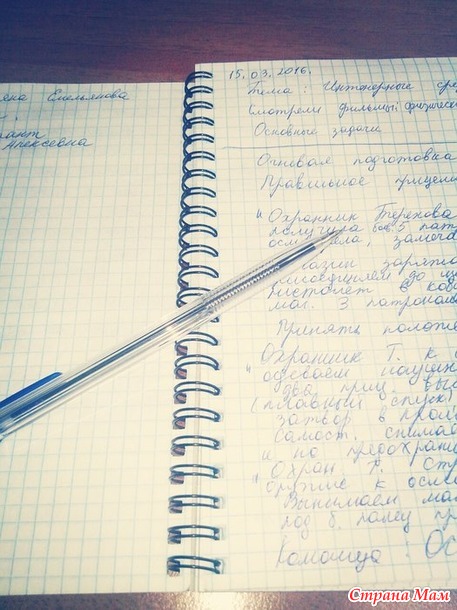 яна Емельянова
рант
Алексеевна
15.03.2016.
Тема: Инженерные сре
Смотрели фильмы: физическ
Основные задачи
Огневая подготовка
Правильное прицели
"Охранник Терехова
получила 5 пат
осмотрела, замеча
газин заряжа
до ще
пистолет в коб
маг. 3 патронами
Принять положе
"Охранник Т. к
одеваем наушни
два приц. выс
(плавный спуск)
затвор в
Самост. снимае
и на предохрани
"Охран Т. Стр
оружие к осмо
Вынимаем ма
под б. палец пр
Команда: Ос
Страна Мам